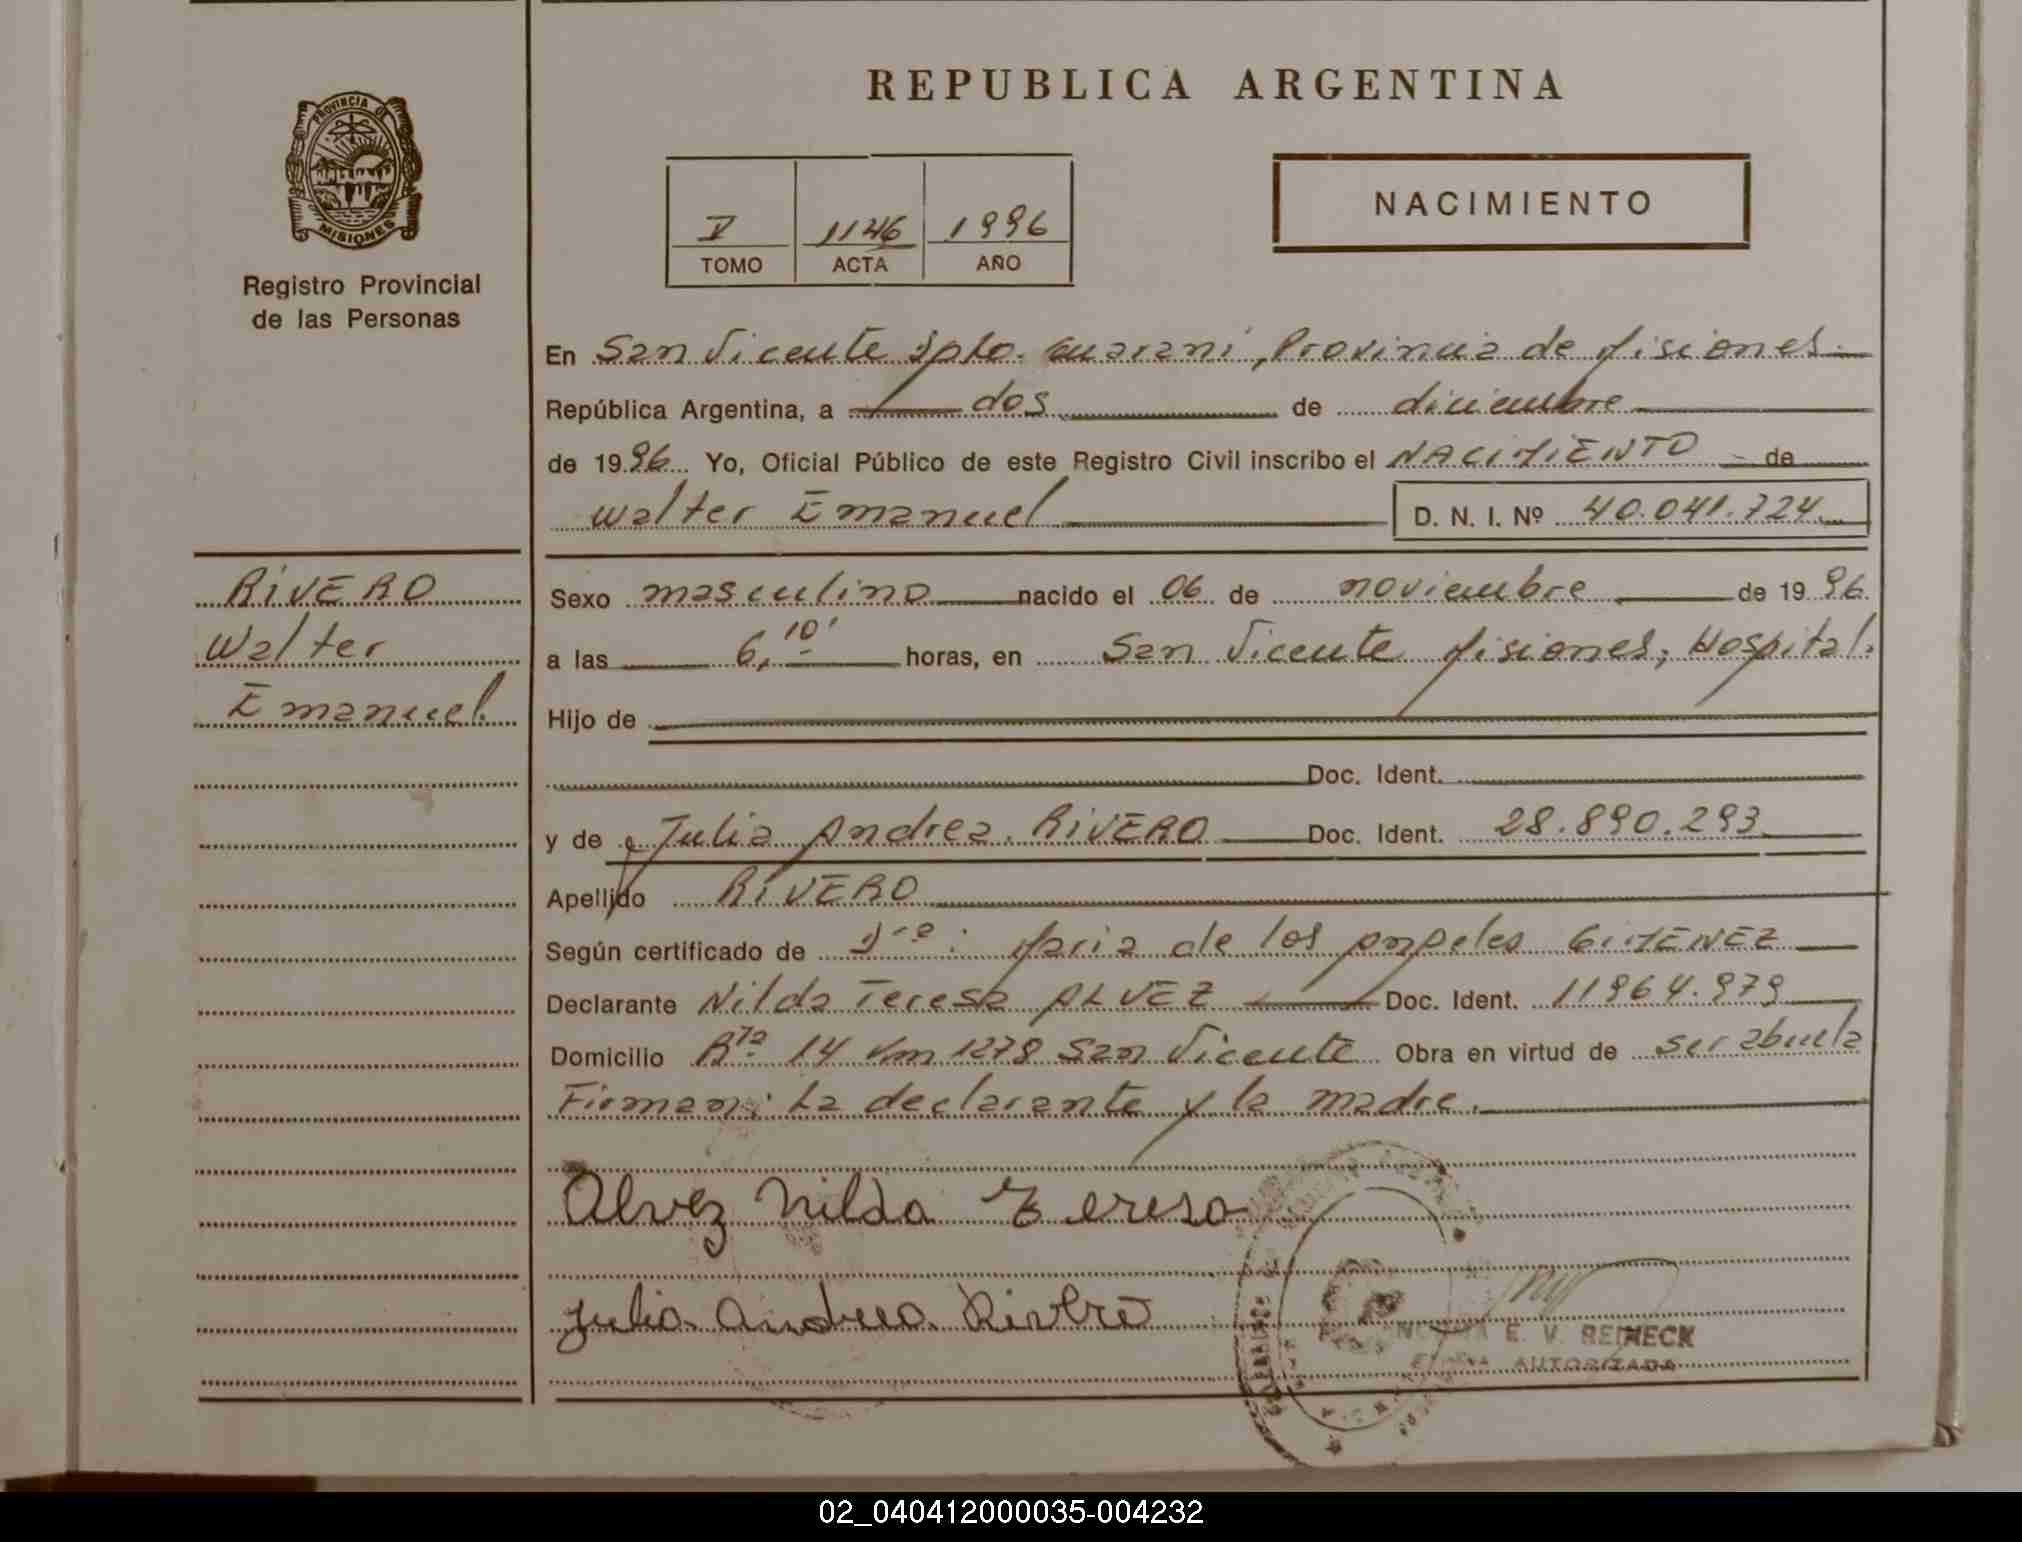 REPUBLICA ARGENTINA
PROVINCIA DE
MISIONES
Registro Provincial
de las Personas
V 1146 1996
TOMO ACTA AÑO
NACIMIENTO
En San Vicente Dpto. Guaraní, Provincia de Misiones
República Argentina, a dos de diciembre
de 1996 Yo, Oficial Público de este Registro Civil inscribo el NACIMIENTO de
Walter Emanuel D. N. I. Nº 40.041.724
RIVERO
Walter
Emanuel
Sexo masculino nacido el 06 de noviembre de 1996.
a las 6,10' horas, en San Vicente Misiones, Hospital.
Hijo de
Doc. Ident.
y de Julia Andrea RIVERO Doc. Ident. 28.890.293
Apellido RIVERO
Según certificado de Dra: Maria de los Angeles GIMENEZ
Declarante Nilda Teresa ALVEZ Doc. Ident. 11964.979
Domicilio Rta 14 Km 1278 San Vicente Obra en virtud de ser abuela
Firman: La declarante y la madre.
Alvez Nilda Teresa
Julia Andrea Rivero
E. V. REINECK
AUTORIZADA
02_040412000035-004232